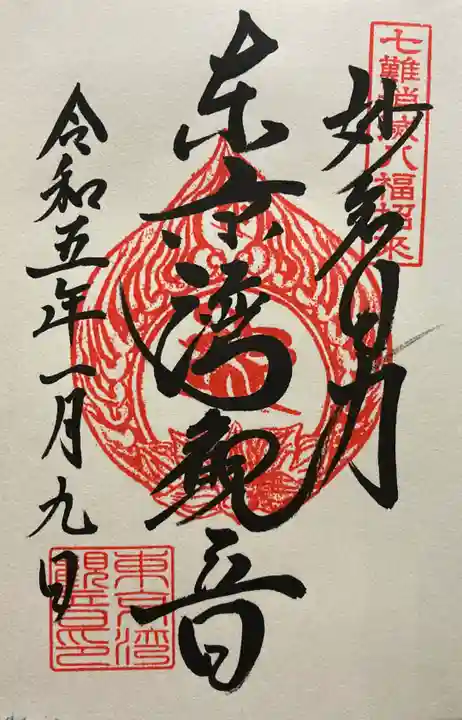 七難消滅八福招来
妙智力
東京湾観音
令和五年一月九日
東京湾
観音印